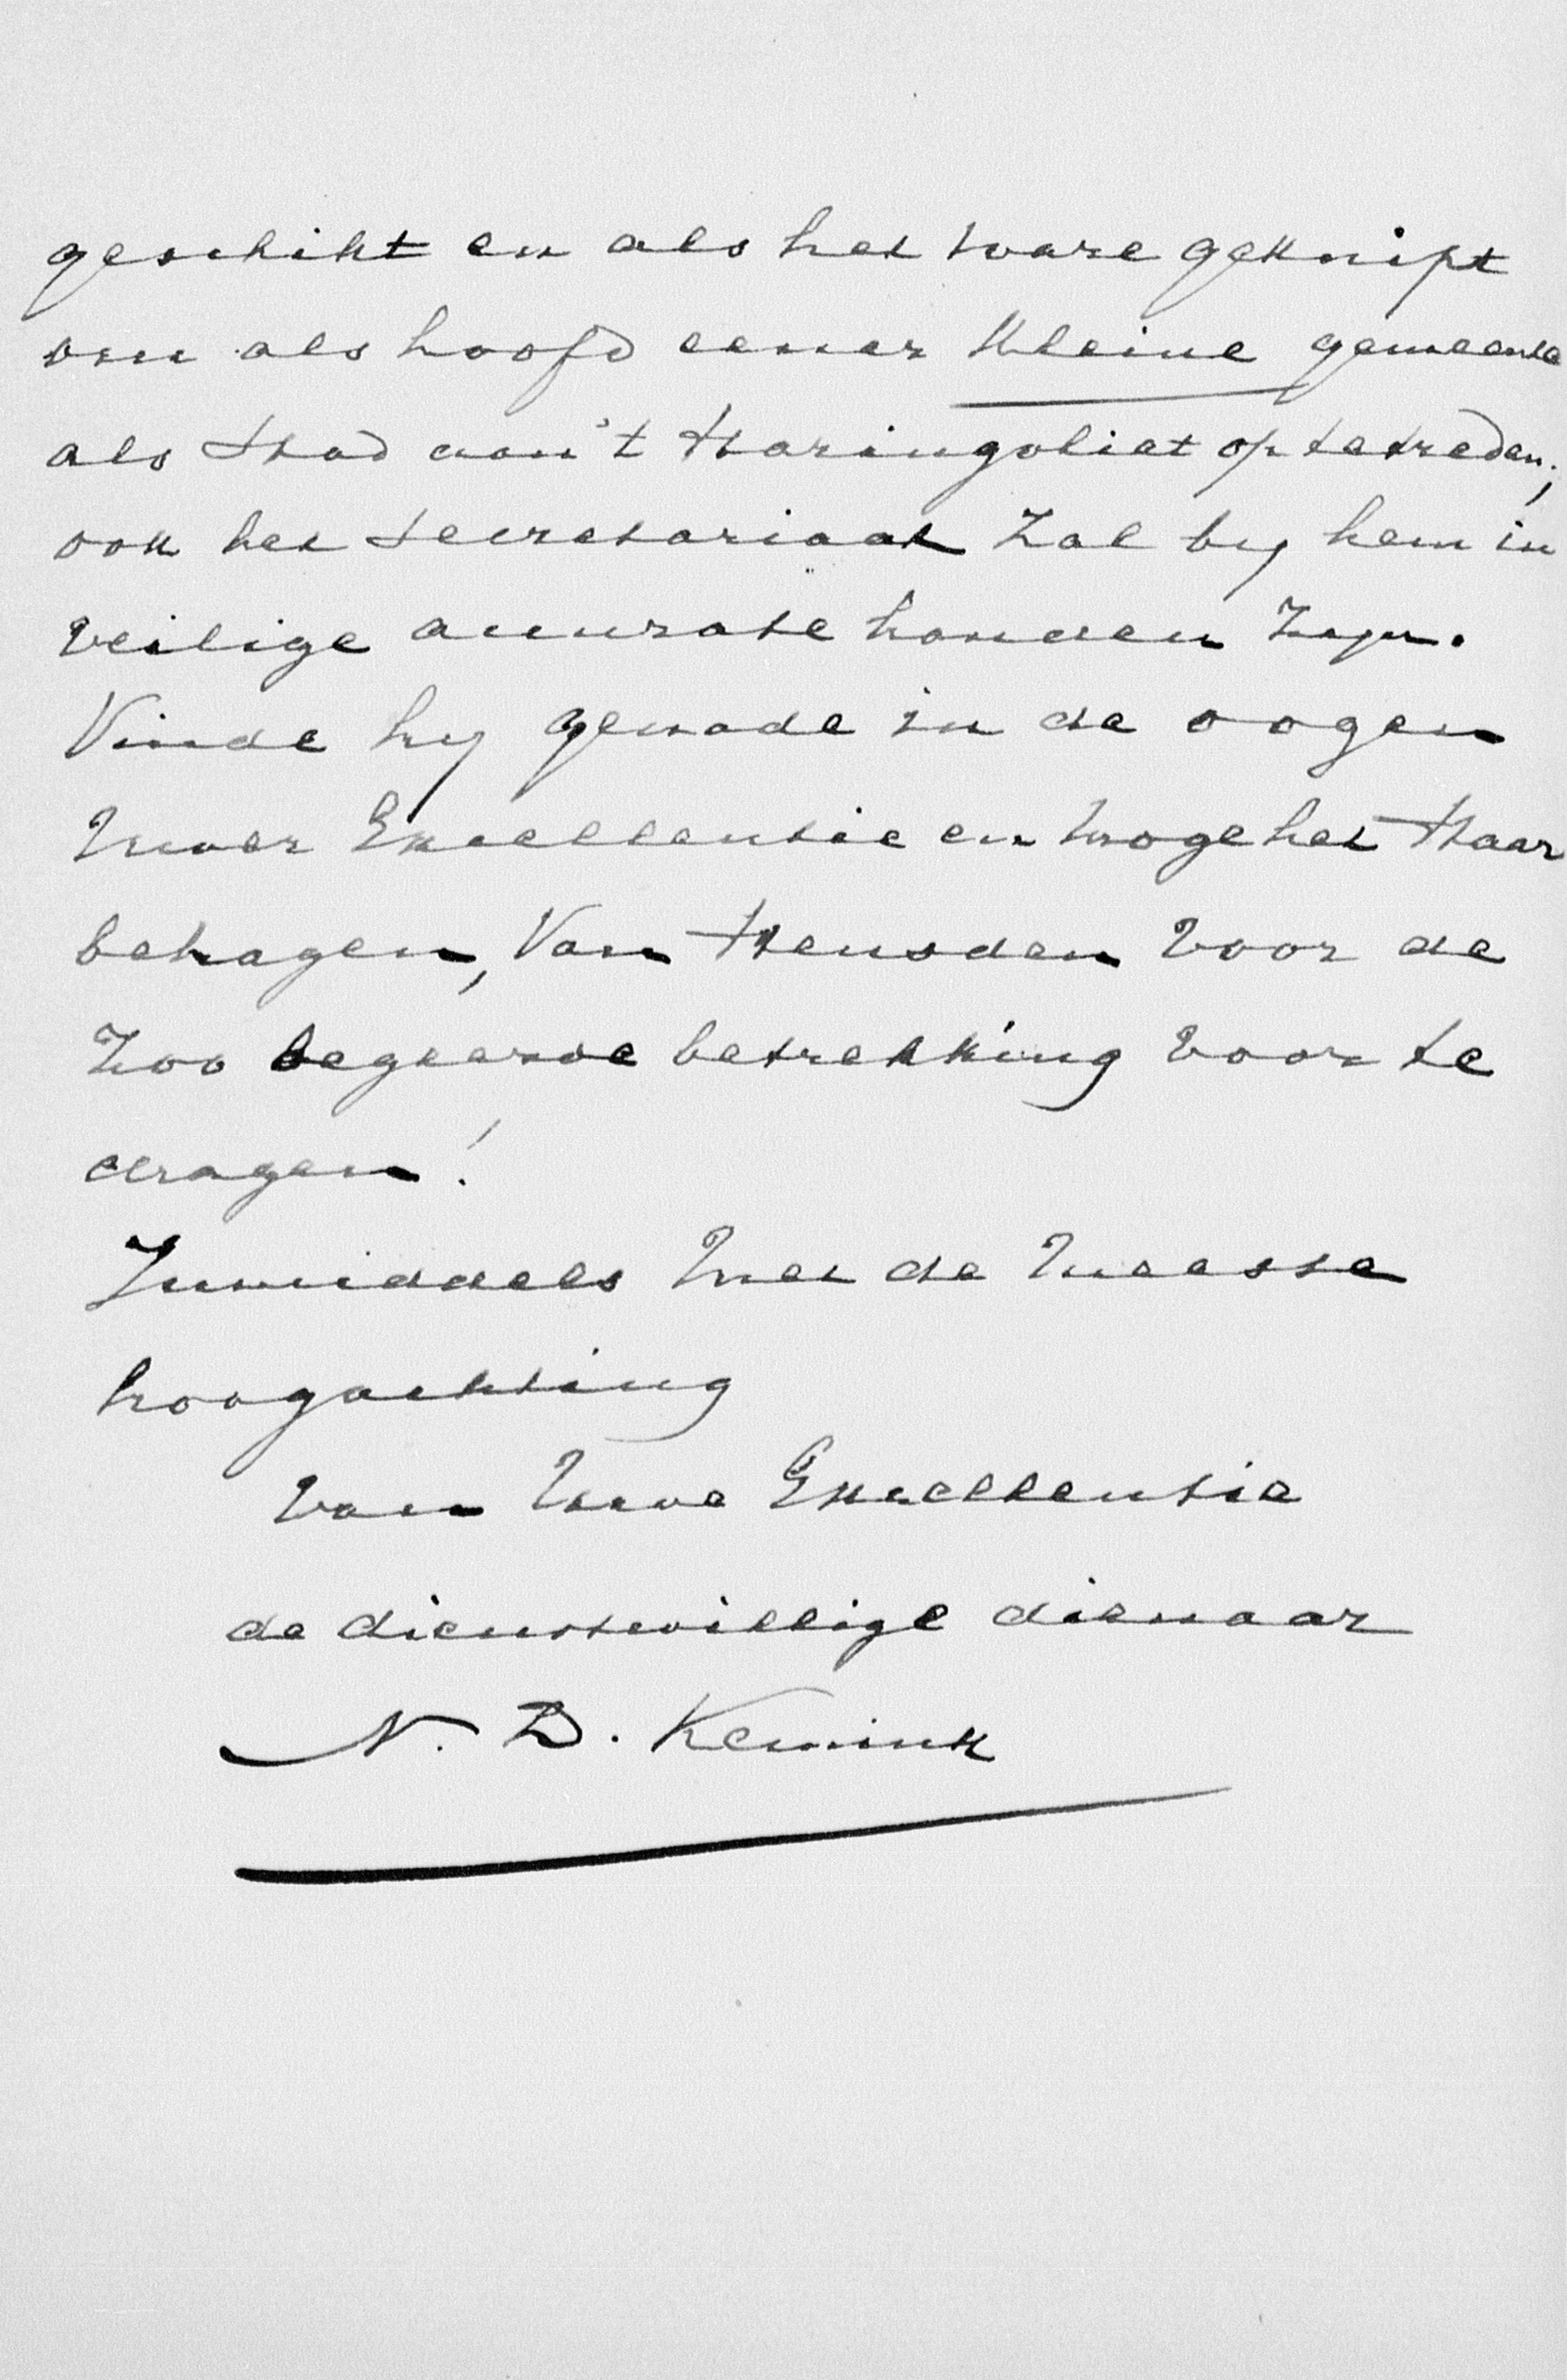 geschikt en als het ware geknipt
om als hoofd eener kleine gemeente
als Stad aan 't Haringvliet op te treden;
ook het secretariaat zal by hem in
veilige accurate handen zyn.
Vinde hy genade in de oogen
Uwer Excellentie en moge het Haar
behagen, Van Heusden voor de
zoo begeerde betrekking voor te
dragen!
Inmiddels met de meeste
hoogachting
van Uwe Excellentie
de dienstwillige dienaar
N. D. Kemink